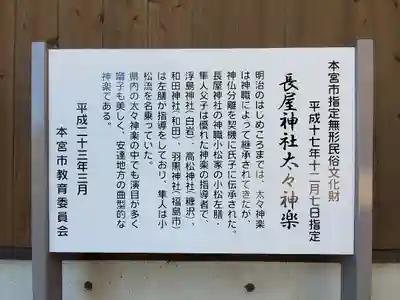 本宮市指定無形民俗文化財
平成十七年十二月七日指定
長屋神社太々神楽
明治のはじめころまでは、太々神楽
は神職によって継承されてきたが、
神仏分離を契機に氏子に伝承された。
長屋神社の神職小松家の小松左膳・
隼人父子は優れた神楽の指導者で、
浮島神社(白岩)、高松神社(糠沢)、
和田神社(和田)、羽黒神社(福島市)
は左膳が指導をしており、隼人は小
松流を名乗っていた。
県内の太々神楽の中でも演目が多く
囃子も美しく、安達地方の典型的な
神楽である。
平成二十三年三月
本宮市教育委員会